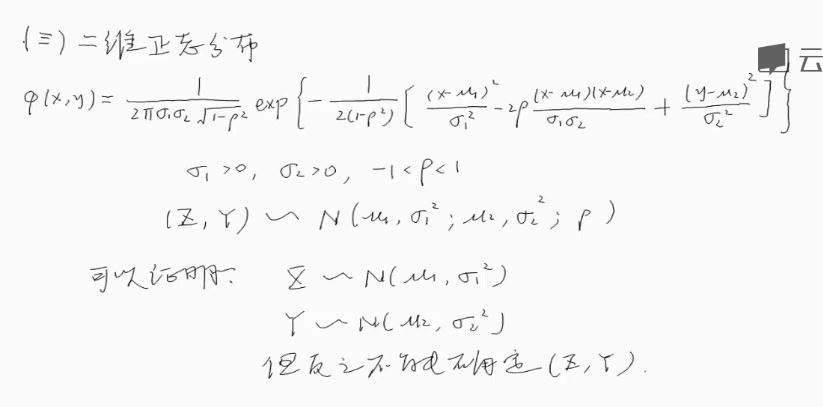 (三) 二维正态分布
云
φ(x,y) = 1/(2πσ₁σ₂√(1-ρ²)) exp{-1/(2(1-ρ²)) [(x-μ₁)²/σ₁² - 2ρ(x-μ₁)(x-μ₂)/(σ₁σ₂) + (y-μ₂)²/σ₂²]}
σ₁>0, σ₂>0, -1<ρ<1
(X, Y) ~ N(μ₁, σ₁²; μ₂, σ₂²; ρ)
可以证明. X ~ N(μ₁, σ₁²)
Y ~ N(μ₂, σ₂²)
但反之不能确定(X, Y).